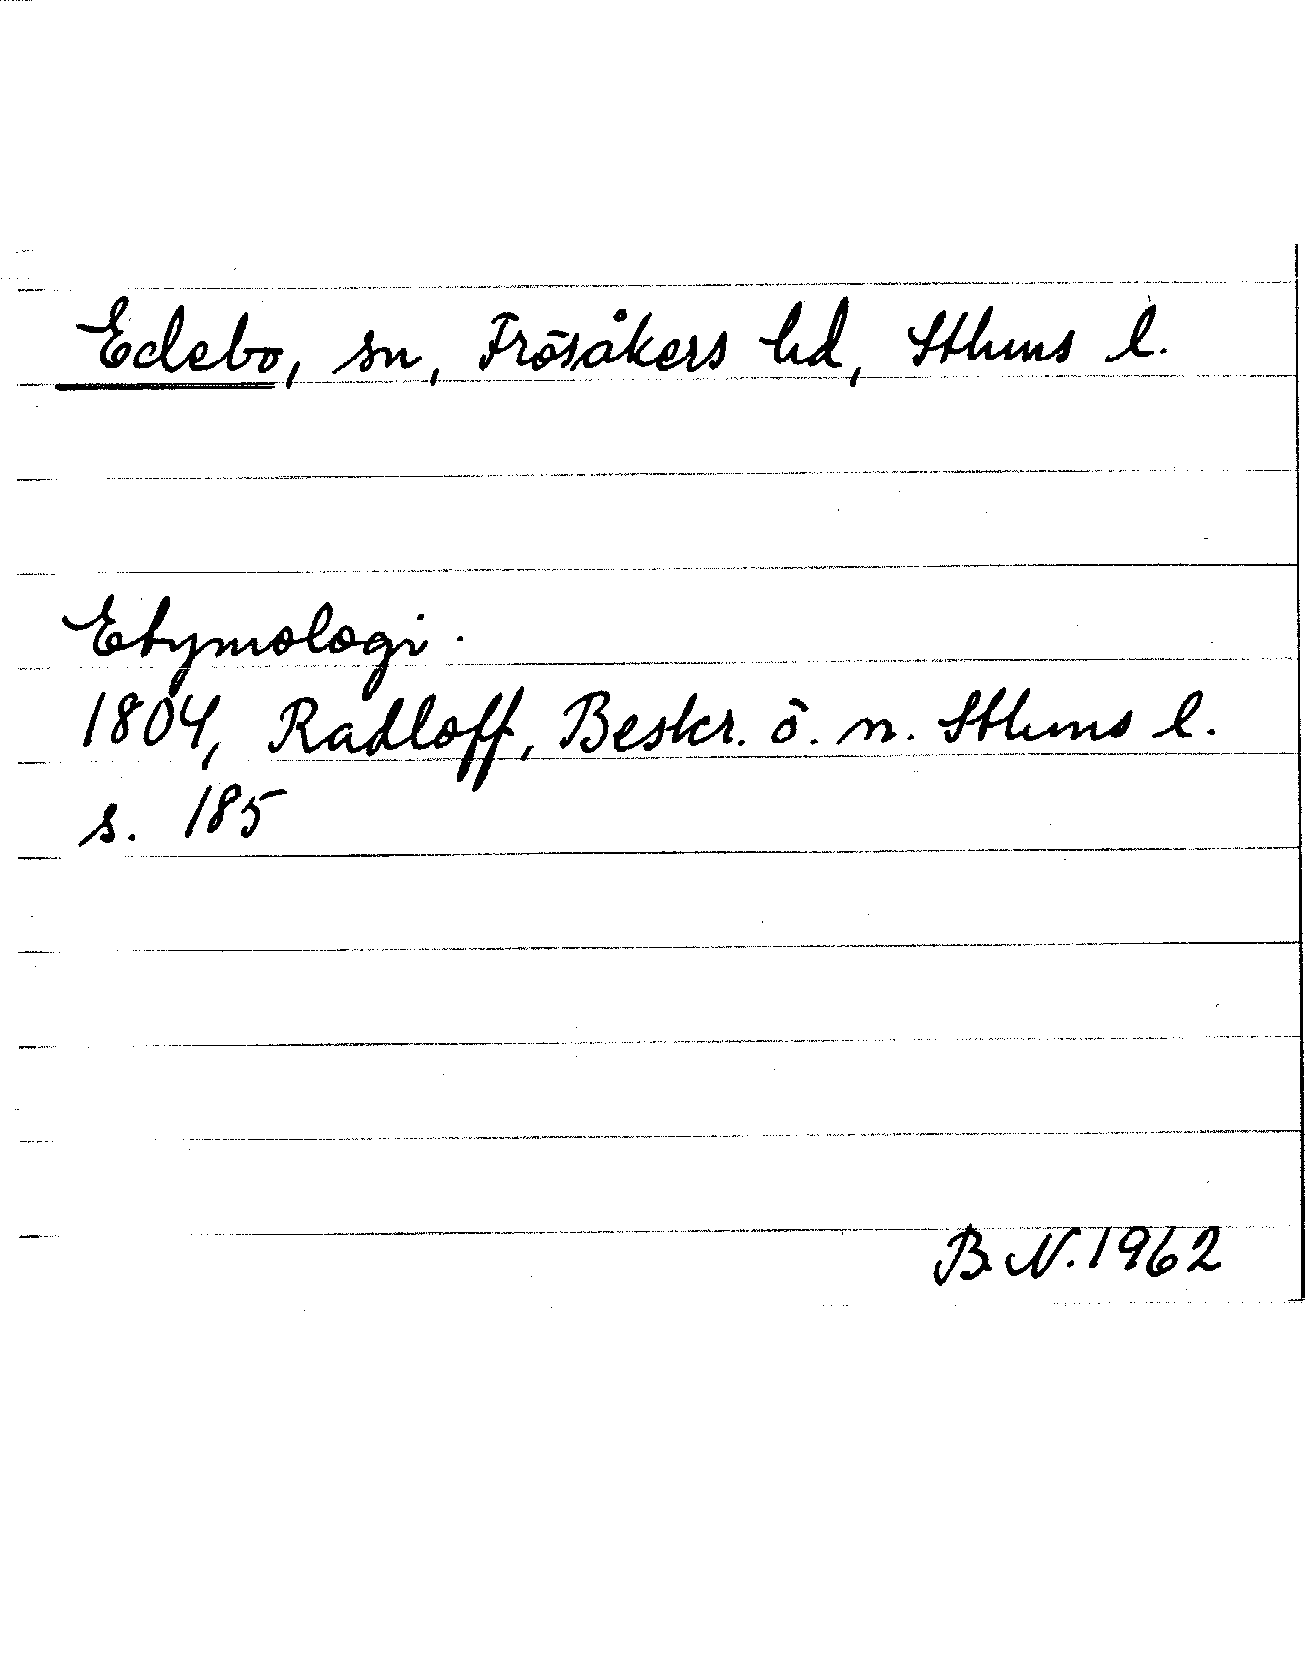 Edebo, sn, Frösåkers hd, Sthms l.
Etymologi.
1804, Radloff, Beskr. ö. n. Sthms l.
s. 185
B.N. 1962